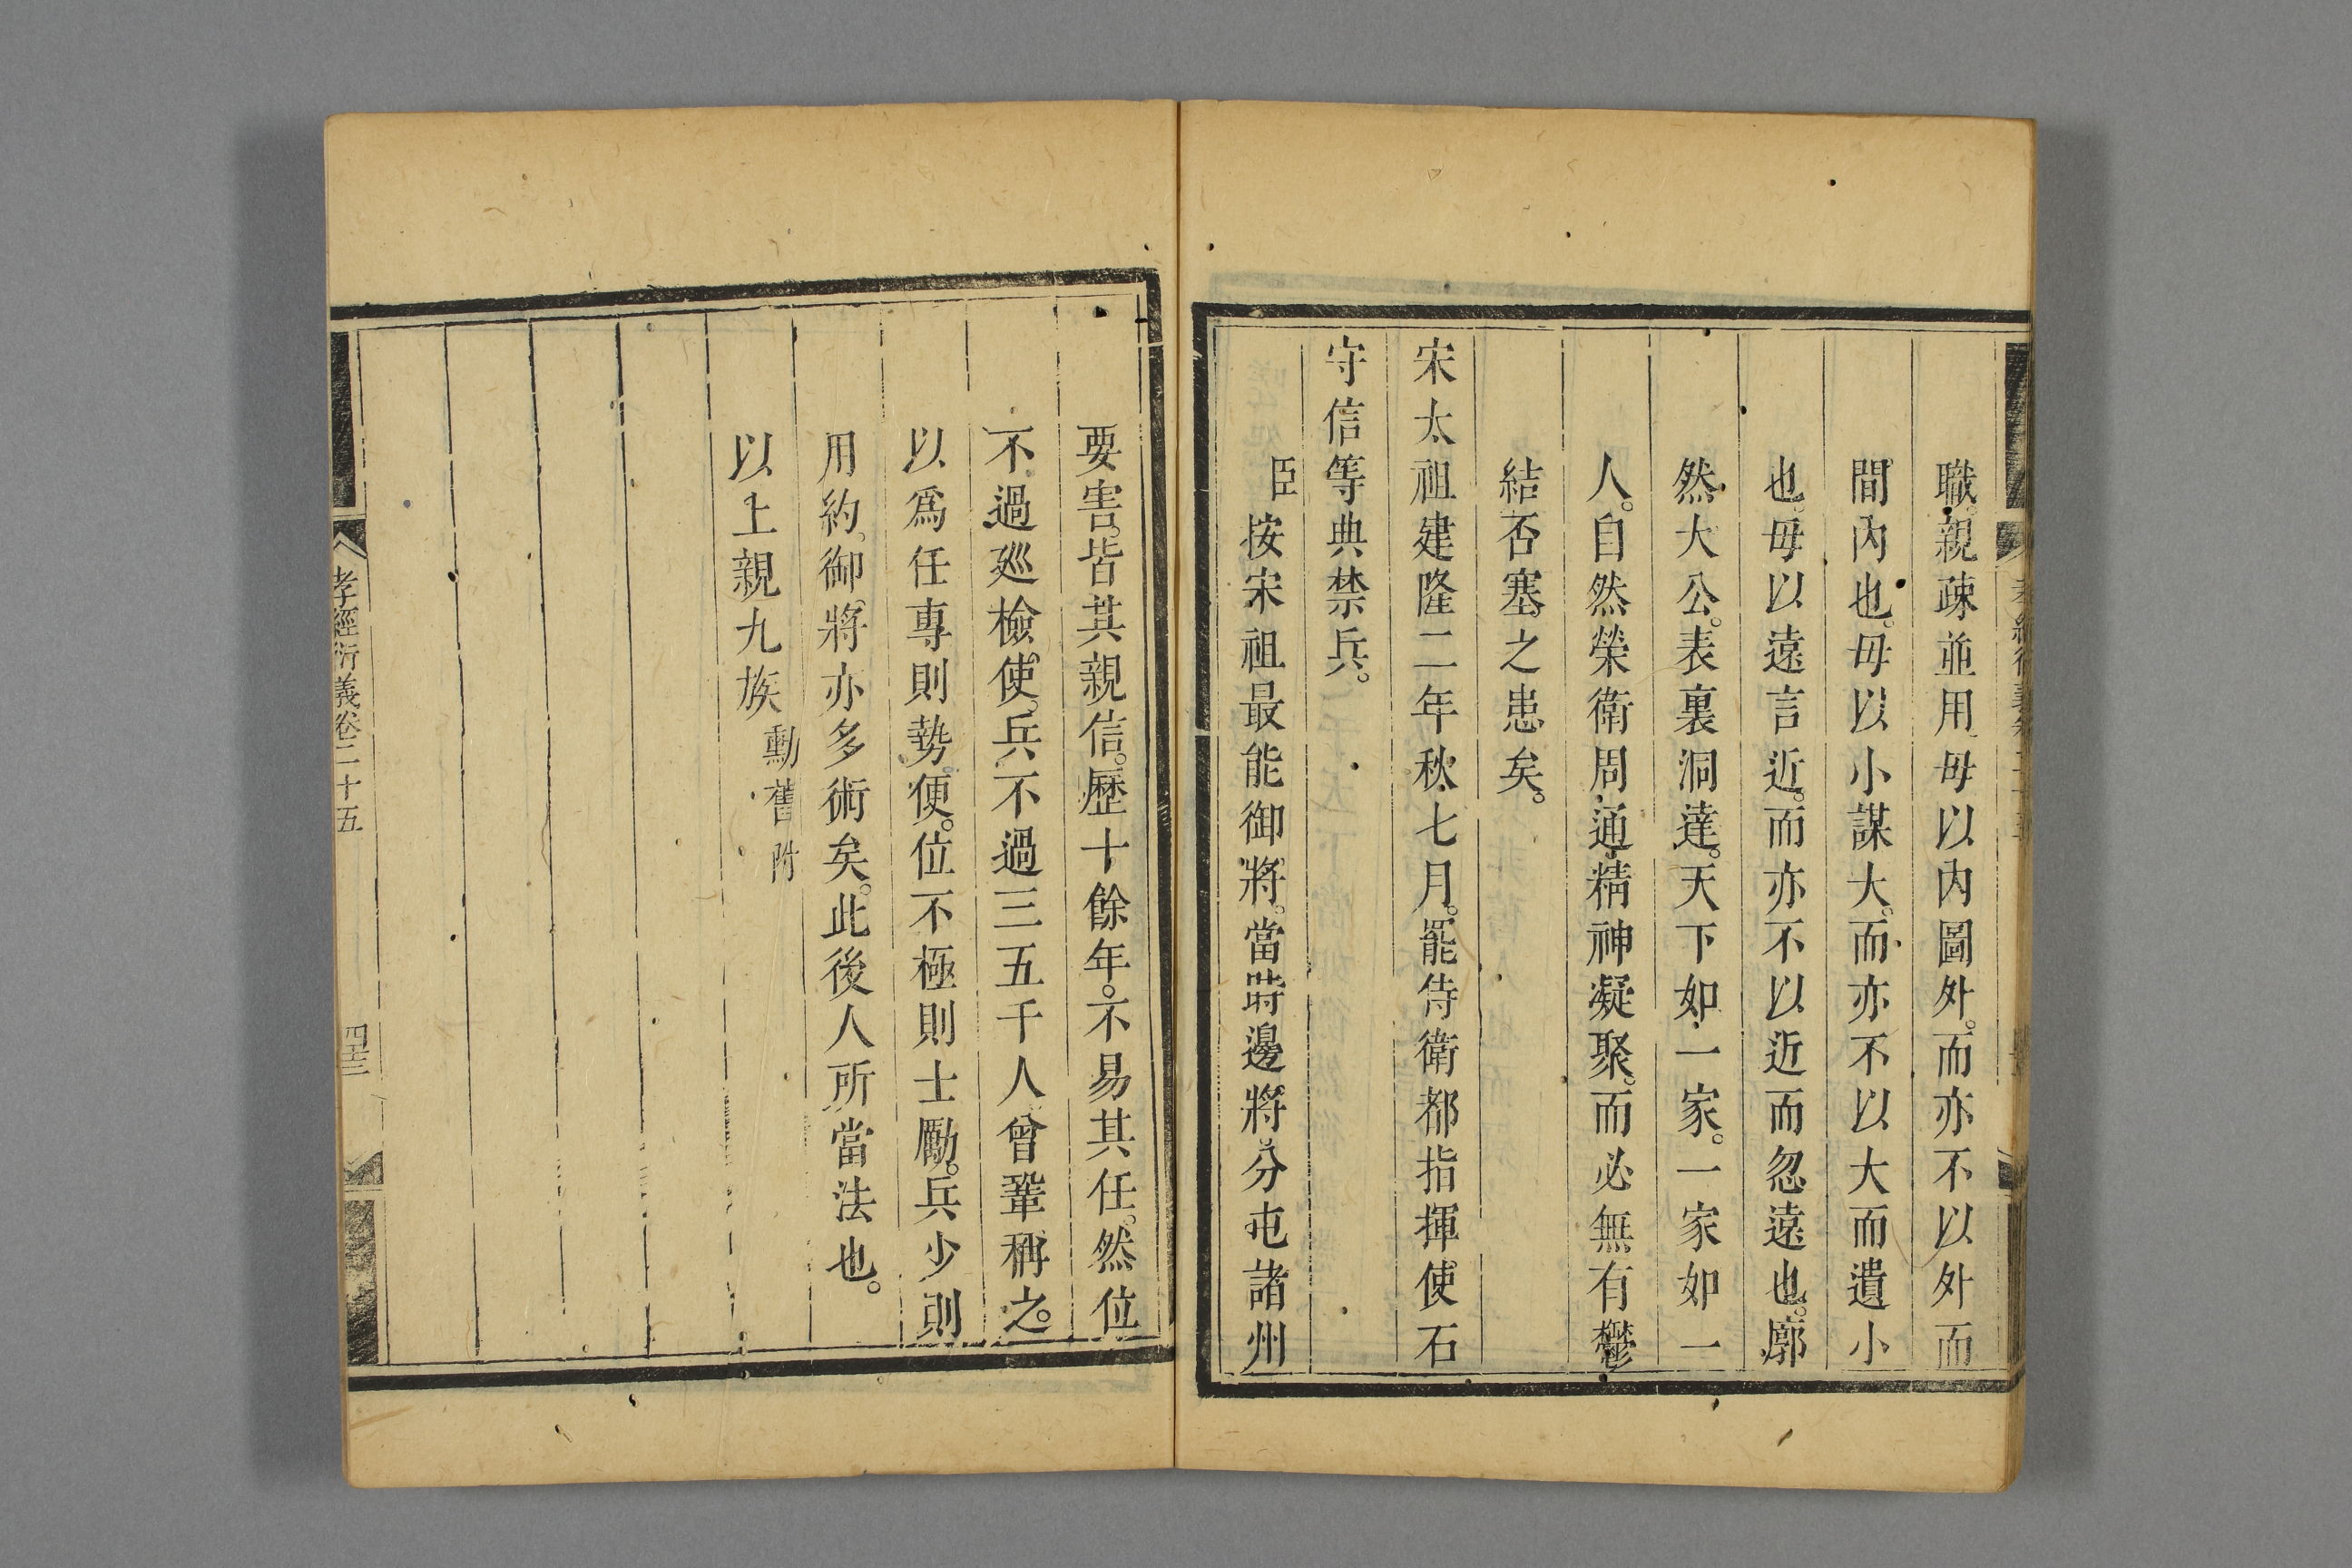 職。親疎並用。毋以内圖外。而亦不以外而
間内也。毋以小謀大。而亦不以大而遺小
也。毋以遠言近。而亦不以近而忽遠也。廓
然大公。表裏洞達。天下如一家。一家如一
人。自然榮衛周通。精神凝聚。而必無有鬱
結否塞之患矣。
宋太祖建隆二年秋七月。罷侍衛都指揮使石
守信等典禁兵。
臣按宋祖最能御將。當時邊將分屯諸州
要害。皆其親信。歷十餘年。不易其任。然位
不過廵檢使。兵不過三五千人。曾鞏稱之。
以爲任專則勢便。位不極則士勵。兵少則
用約。御將亦多術矣。此後人所當法也。
以上親九族勳舊附
孝經衍義卷二十五